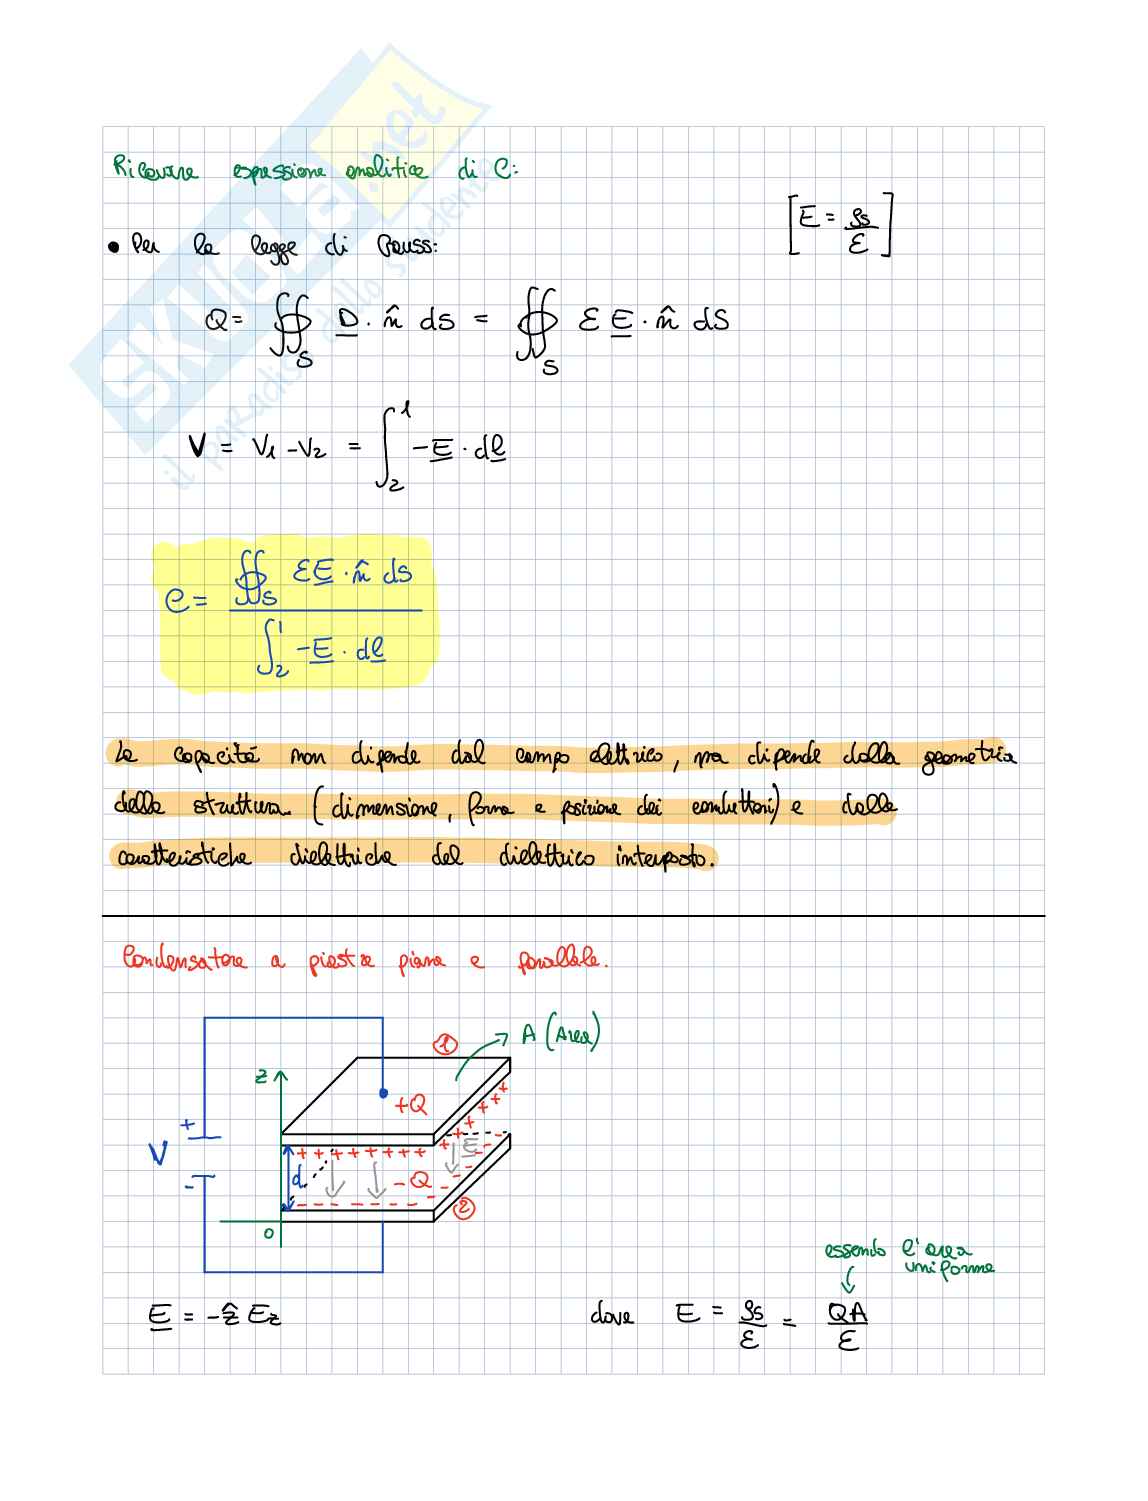 Ricavare espressione analitica di C:
[E = ρs/ε]
• Per la legge di Gauss:
Q = ∯_S D · n̂ ds = ∯_S ε E · n̂ dS
V = V₁ - V₂ = ∫₂¹ -E · dl
C = ∯_S ε E · n̂ ds / ∫₂¹ -E · dl
La capacità non dipende dal campo elettrico, ma dipende dalla geometria
della struttura (dimensione, forma e posizione dei conduttori) e dalle
caratteristiche dielettriche del dielettrico interposto.
Condensatore a piastre piane e parallele.
A (Area)
1
z
+Q
+ + + + + + + +
+ + + + + +
E
V
+
-
d
-Q
- - - - - - - -
2
0
essendo l'area
uniforme
E = -ẑ Ez
dove E = ρs/ε = QA/ε
SKUOLA.net
il paradiso dello studente